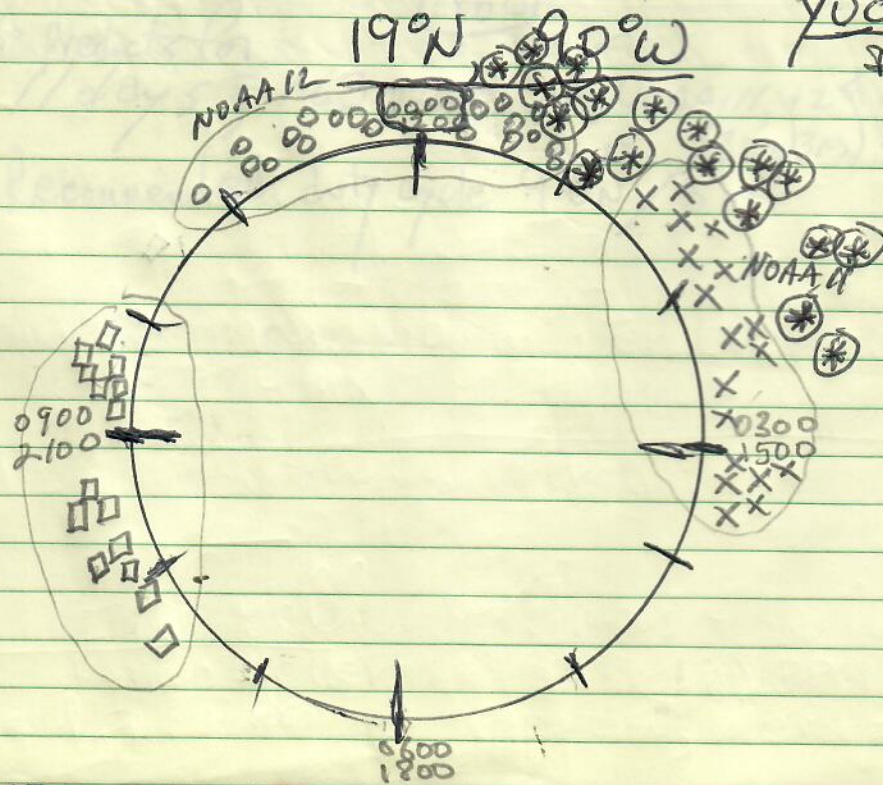 19°N 90°W
YUC
NOAA 12
0000
1200
NOAA 11
0900
2100
0300
1500
0600
1800